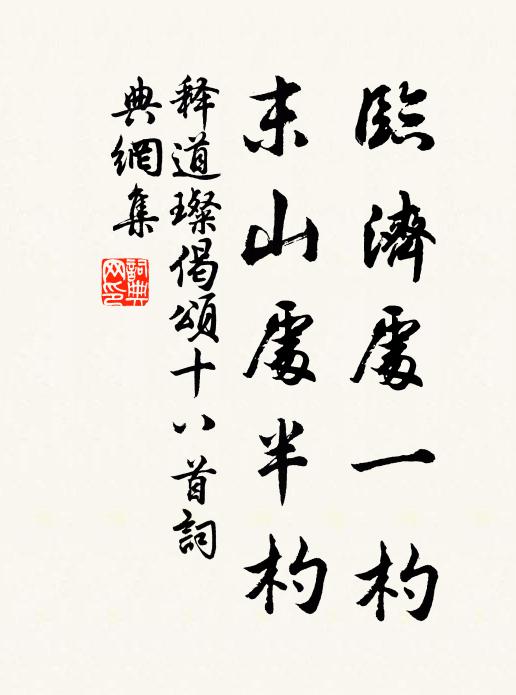 臨濟處一杓
末山處半杓
释道璨偈頌十八首詞
典網集
詞典网印